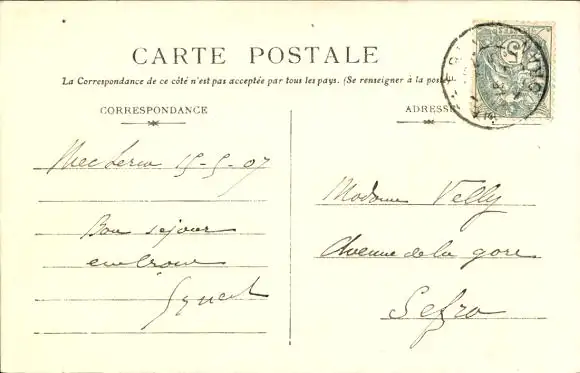 CARTE POSTALE
La Correspondance de ce côté n'est pas acceptée par tous les pays. (Se renseigner à la poste
CORRESPONDANCE
ADRESSE
15-5-07
Bon séjour
Madame Velly
Avenue de la gare
Sefra